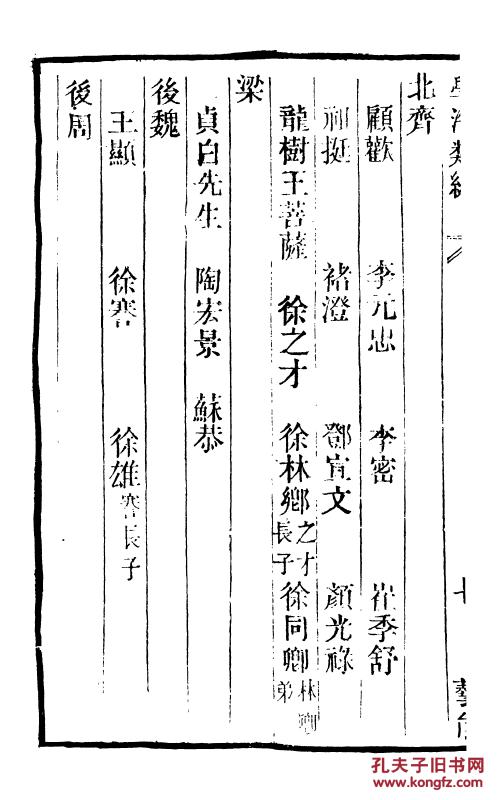 北齊
顧歡 李元忠 李密 崔季舒
祖挺 褚澄 鄧宣文 顏光祿
龍樹王菩薩 徐之才 徐林鄉之才長子 徐同卿林卿弟
梁
貞白先生 陶宏景 蘇恭
後魏
王顯 徐謇 徐雄謇長子
後周
孔夫子旧书网
www.kongfz.com